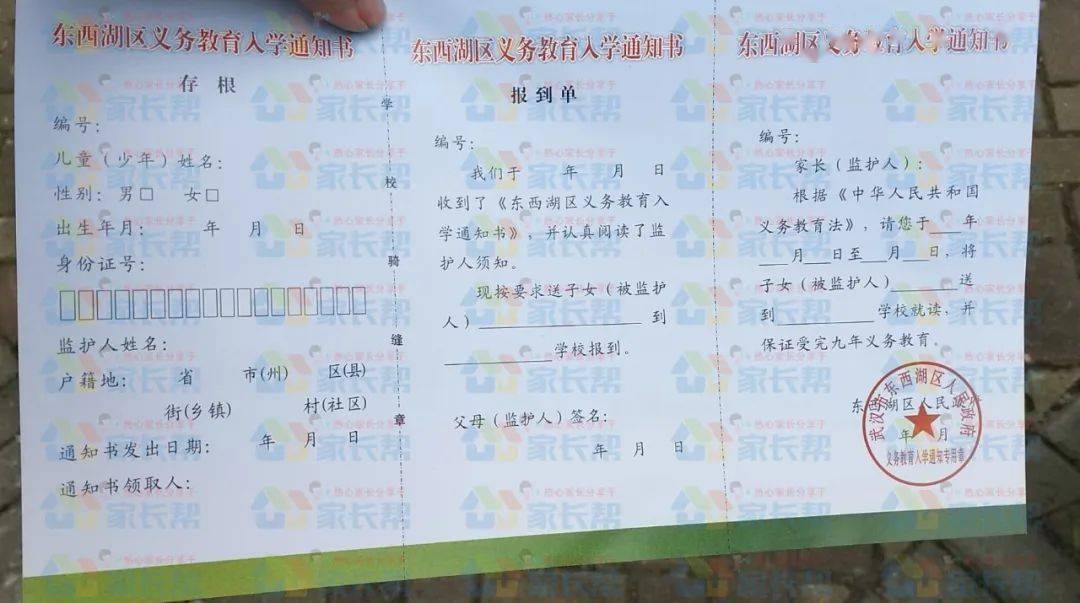 东西湖区义务教育入学通知书
存 根
编号：
儿童（少年）姓名：
性别： 男□ 女□
出生年月： 年 月 日
身份证号：
□□□□□□□□□□□□□□□□□□
监护人姓名：
户籍地： 省 市(州) 区(县)
街(乡镇) 村(社区)
通知书发出日期： 年 月 日
通知书领取人：
学
校
骑
缝
章
东西湖区义务教育入学通知书
报到单
编号：
我们于 年 月 日
收到了《东西湖区义务教育入
学通知书》，并认真阅读了监
护人须知。
现按要求送子女（被监护
人）________________到
____________学校报到。
父母（监护人）签名：
年 月 日
东西湖区义务教育入学通知书
编号：
家长（监护人）：
根据《中华人民共和国
义务教育法》，请您于___年
___月___日至___月___日，将
子女（被监护人）_______送
到___________学校就读，并
保证受完九年义务教育。
东西湖区人民政府
年 月
武汉市东西湖区人民政府
义务教育入学通知专用章
热心家长分享于
家长帮